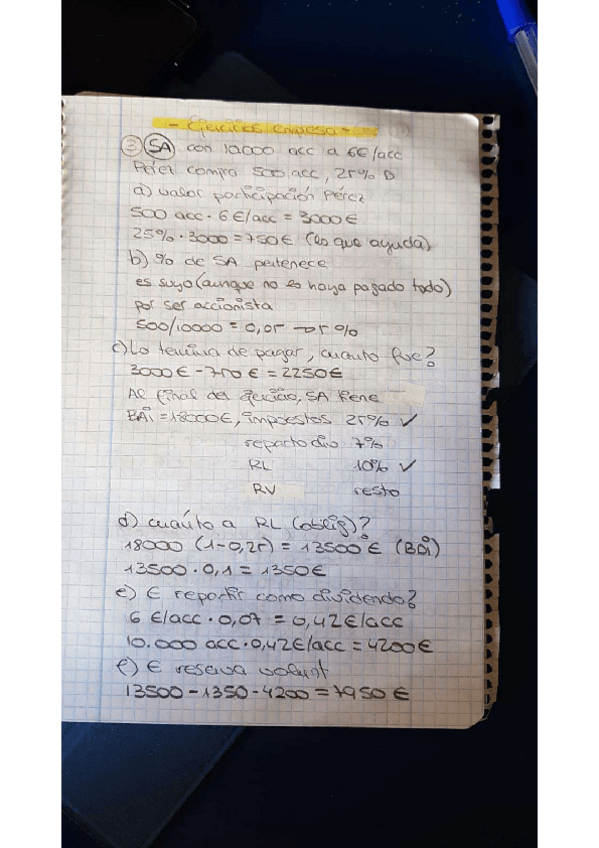 - Ejercicios empresa -
③ SA con 10000 acc a 6€/acc
Pérez compra 500 acc, 25% D
a) valor participación Pérez
500 acc · 6€/acc = 3000€
25% · 3000 = 750€ (lo que ayuda)
b) % de SA pertenece
es suyo (aunque no lo haya pagado todo)
por ser accionista
500/10000 = 0,05 → 5%
c) Lo termina de pagar, cuanto fue?
3000€ - 750€ = 2250€
Al final del ejercicio, SA tiene
BAi = 18000€, impuestos 25% ✓
reparto div 7%
RL 10% ✓
RV resto
d) cuánto a RL (oblig)?
18000 (1-0,25) = 13500€ (BDi)
13500 · 0,1 = 1350€
e) € repartir como dividendo?
6 €/acc · 0,07 = 0,42€/acc
10.000 acc · 0,42€/acc = 4200€
f) € reserva volunt
13500 - 1350 - 4200 = 7950€